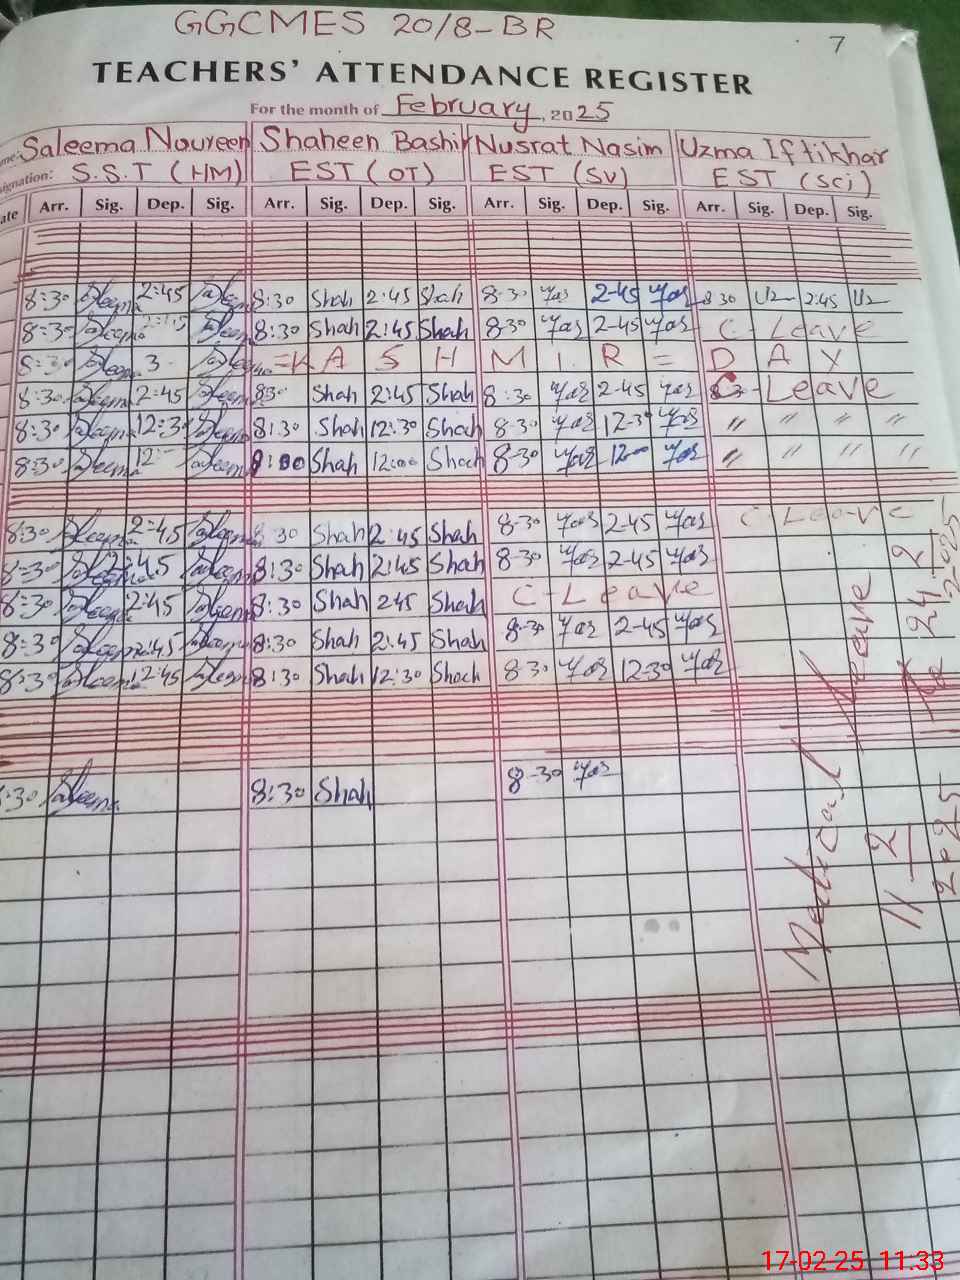 GGCMES 20/8-BR
7
TEACHERS' ATTENDANCE REGISTER
For the month of February, 2025
Saleema Noureen Shaheen Bashir Nusrat Nasim Uzma Iftikhar
signation: S.S.T (HM) EST (OT) EST (SV) EST (Sci)
ate Arr. Sig. Dep. Sig. Arr. Sig. Dep. Sig. Arr. Sig. Dep. Sig. Arr. Sig. Dep. Sig.
8:30 Saleema 2:45 Saleema 8:30 Shah 2:45 Shah 8-30 2-45 8 30 Uz 2:45 Uz
8:30 Saleema Saleema 8:30 Shah 2:45 Shah 8-30 2-45 C-Leave
8:30 Saleema 3- Saleema =KASHMIR= DAY
8:30 Saleema 2:45 Saleema 830 Shah 2:45 Shah 8:30 2-45 C-Leave
8:30 Saleema 12:30 Saleema 8:30 Shah 12:30 Shah 8-30 12-30 " " " "
8:30 Saleema 12:- Saleema 8:00 Shah 12:00 Shah 8-30 1200 " " " "
8:30 Saleema 2:45 Saleema 8 30 Shah 2:45 Shah 8-30 2-45 C-Leave
8:30 Saleema 2:45 Saleema 8:30 Shah 2:45 Shah 8-30 2-45
8:30 Saleema 2:45 Saleema 8:30 Shah 245 Shah C-Leave
8:30 Saleema 2:45 Saleema 8:30 Shah 2:45 Shah 8-30 2-45
8:30 Saleema 12:45 Saleema 8:30 Shah 12:30 Shah 8-30 12-30
:30 Saleema 8:30 Shah 8-30
Medical Leave
11 2 2025 To 24 2 2025
17-02-25 11:33